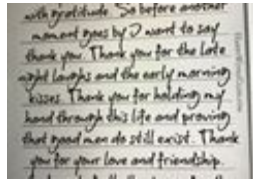 with gratitude. So before another
moment goes by I want to say
thank you. Thank you for the late
night laughs and the early morning
kisses. Thank you for holding my
hand through this life and proving
that good men do still exist. Thank
you for your love and friendship.